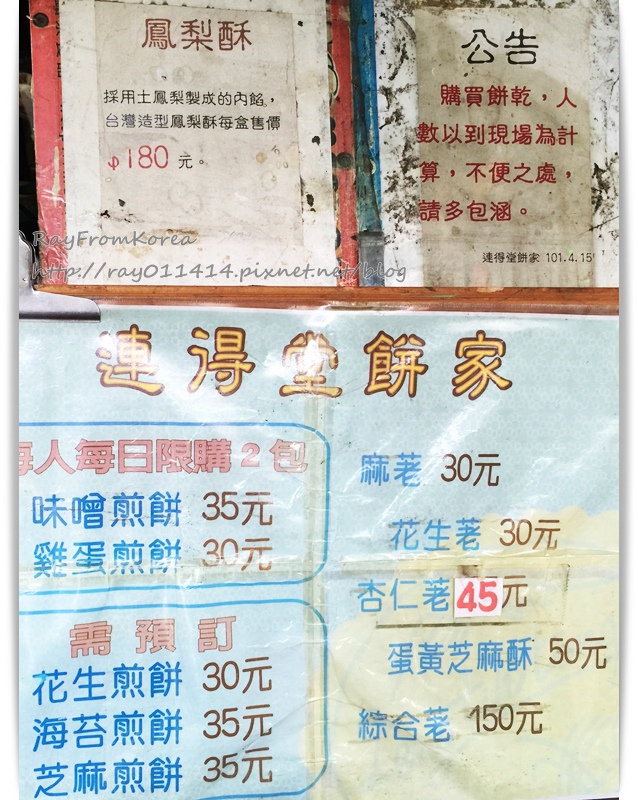 鳳梨酥
採用土鳳梨製成的內餡，
台灣造型鳳梨酥每盒售價
$180 元。
公告
購買餅乾，人
數以到現場為計
算，不便之處，
請多包涵。
連得堂餅家 101.4.15
RayFromKorea
http://ray011414.pixnet.net/blog
連得堂餅家
每人每日限購2包
味噌煎餅 35元
雞蛋煎餅 30元
需預訂
花生煎餅 30元
海苔煎餅 35元
芝麻煎餅 35元
麻荖 30元
花生荖 30元
杏仁荖 45元
蛋黃芝麻酥 50元
綜合荖 150元